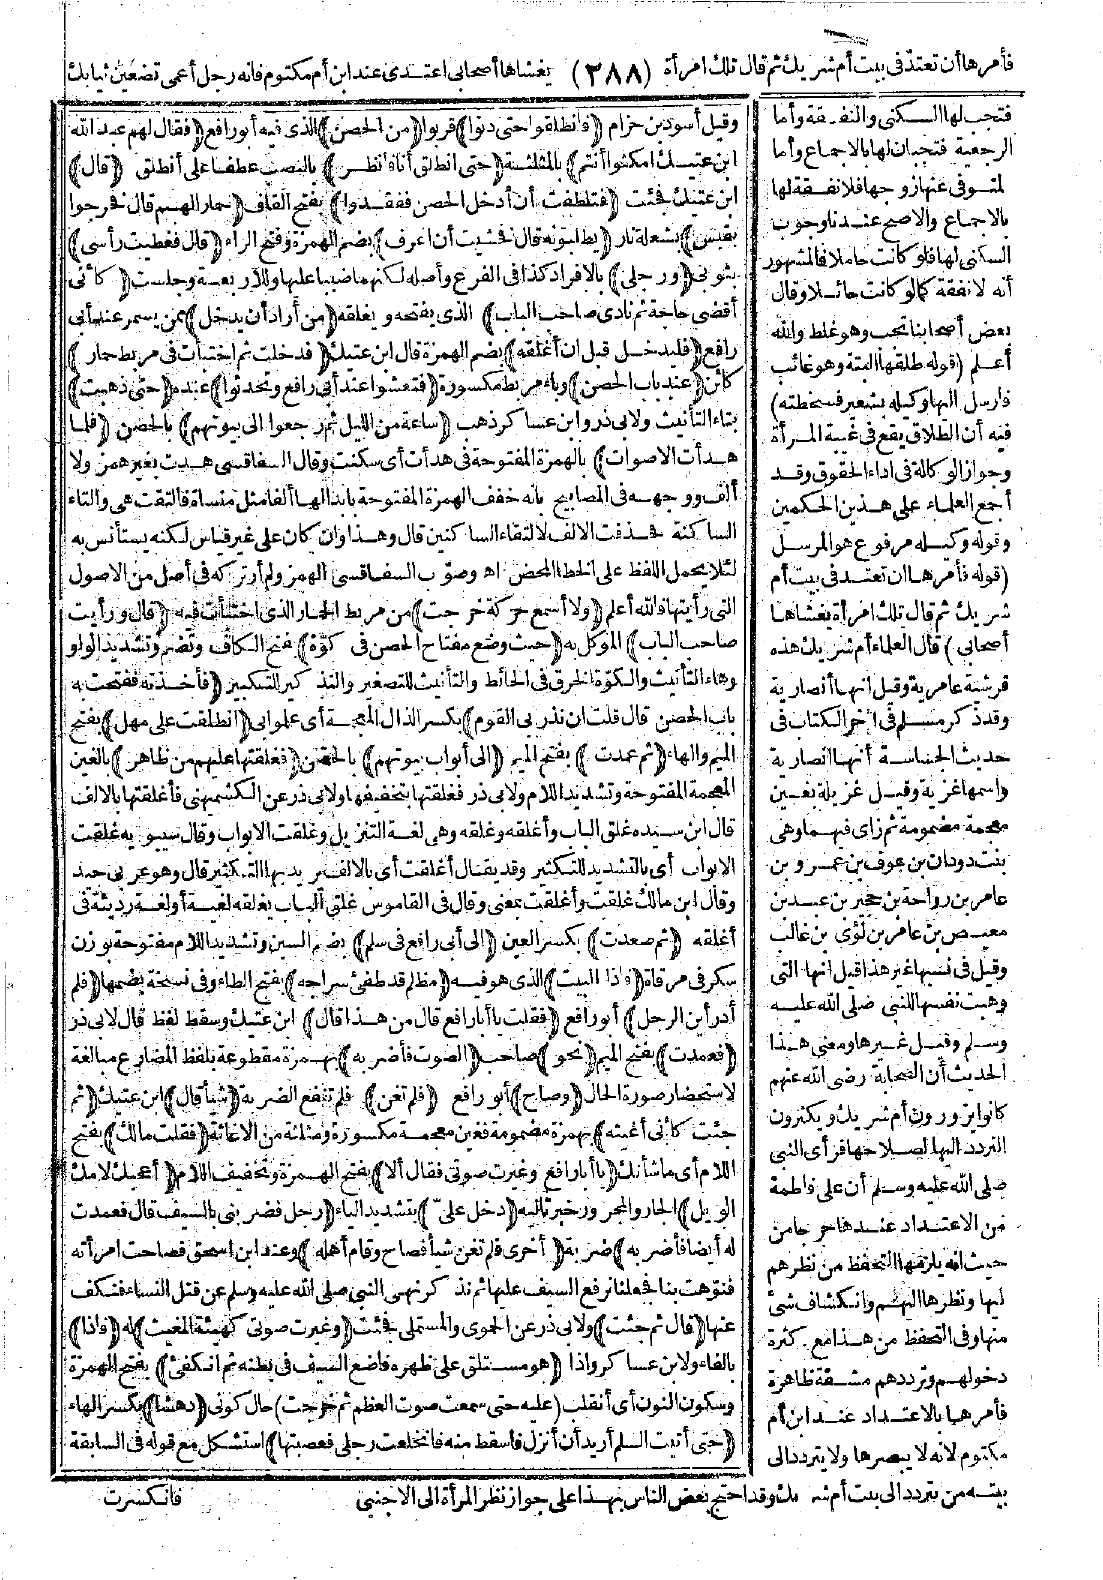 فأمرها أن تعتد في بيت أم شريك ثم قال تلك امرأة (٢٨٨) يغشاها أصحابي اعتدي عند ابن أم مكتوم فانه رجل أعمى تضعين ثيابك
فتجب لها السكنى والنفقة وأما
الرجعية فتجبان لها بالاجماع وأما
المتوفى عنها زوجها فلا نفقة لها
بالاجماع والاصح عندنا وجوب
السكنى لها فلو كانت حاملا فالمشهور
أنه لا نفقة كما لو كانت حائلا وقال
بعض أصحابنا تجب وهو غلط والله
أعلم (قوله طلقها البتة وهو غائب
فارسل اليها وكيله بشعير فسخطته)
فيه أن الطلاق يقع في غيبة المرأة
وجواز الوكالة في اداء الحقوق وقد
أجمع العلماء على هذين الحكمين
وقوله وكيله مرفوع هو المرسل
(قوله فأمرها ان تعتد في بيت أم
شريك ثم قال تلك امرأة يغشاها
أصحابي) قال العلماء أم شريك هذه
قرشية عامرية وقيل انها أنصارية
وقد ذكر مسلم في آخر الكتاب في
حديث الجساسة أنها انصارية
واسمها غزية وقيل غزيلة بغين
معجمة مضمومة ثم زاى فيهما وهى
بنت دودان بن عوف بن عمرو بن
عامر بن رواحة بن حجير بن عبد بن
معيص بن عامر بن لؤى بن غالب
وقيل في نسبها غير هذا قيل انها التى
وهبت نفسها للنبي صلى الله عليه
وسلم وقيل غيرها ومعنى هذا
الحديث أن الصحابة رضى الله عنهم
كانوا يزورون أم شريك ويكثرون
التردد اليها لصلاحها فرأى النبي
صلى الله عليه وسلم أن على فاطمة
من الاعتداد عندها حرجا من
حيث انه يلزمها التحفظ من نظرهم
اليها ونظرها اليهم وانكشاف شئ
منها وفى التحفظ من هذا مع كثرة
دخولهم وترددهم مشقة ظاهرة
فأمرها بالاعتداد عند ابن أم
مكتوم لانه لا يبصرها ولا يتردد الى
بيته من يتردد الى بيت أم شريك وقد احتج بعض الناس بهذا على جواز نظر المرأة الى الاجنبى
وقيل أسود بن حزام (فانطلقوا حتى دنوا) قربوا (من الحصن) الذى فيه أبو رافع (فقال لهم عبد الله
ابن عتيك امكثوا أنتم) بالمثلثة (حتى انطلق أنا فانظر) بالنصب عطفا على أنطلق (قال)
ابن عتيك فجئت (فتلطفت أن أدخل الحصن ففقدوا) بفتح القاف (حمارا لهم قال فخرجوا
بقبس) بشعلة نار (يطلبونه قال فخشيت أن اعرف) بضم الهمزة وفتح الراء (قال فغطيت رأسى)
بثوبى (ورجلى) بالافراد كذا فى الفرع وأصله لكنهما ضببا عليها وللاربعة وجلست (كأنى
أقضى حاجة ثم نادى صاحب الباب) الذى يفتحه ويغلقه (من أراد أن يدخل) ممن يسمر عند أبى
رافع (فليدخل قبل ان أغلقه) بضم الهمزة قال ابن عتيك (فدخلت ثم اختبأت فى مربط حمار)
كائن (عند باب الحصن) وباء مربط مكسورة (فتعشوا عند أبى رافع وتحدثوا) عنده (حتى ذهبت)
بتاء التأنيث ولابى ذر وابن عساكر ذهب (ساعة من الليل ثم رجعوا الى بيوتهم) بالحصن (فلما
هدأت الاصوات) بالهمزة المفتوحة فى هدأت أى سكنت وقال السفاقسى هدت بغير همز ولا
ألف ووجهه فى المصابيح بأنه خفف الهمزة المفتوحة بابدالها ألفا مثل منساة فالتقت هى والتاء
الساكنة فحذفت الالف لالتقاء الساكنين قال وهذا وان كان على غير قياس لكنه يستأنس به
لئلا يحمل اللفظ على الخطا المحض اه وصوّب السفاقسى الهمز ولم أر تركه فى أصل من الاصول
التى رأيتها فالله أعلم (ولا أسمع حركة خرجت) من مربط الحمار الذى اختبأت فيه (قال ورأيت
صاحب الباب) الموكل به (حيث وضع مفتاح الحصن فى كوّة) بفتح الكاف وتضم وتشديد الواو
وهاء التأنيث والكوّة الخرق فى الحائط والتأنيث للتصغير والتذكير للتكبير (فأخذته ففتحت به
باب الحصن قال قلت ان نذر بى القوم) بكسر الذال المعجمة أى علموا بى (انطلقت على مهل) بفتح
الميم والهاء (ثم عمدت) بفتح الميم (الى أبواب بيوتهم) بالحصن (فغلقتها عليهم من ظاهر) بالغين
المعجمة المفتوحة وتشديد اللام ولابى ذر فغلقتها بتخفيفها ولابى ذر عن الكشميهنى فأغلقتها بالالف
قال ابن سيده غلق الباب وأغلقه وغلقه وهى لغة التنزيل وغلقت الابواب وقال سيبويه غلقت
الابواب أى بالتشديد للتكثير وقد يقال أغلقت أى بالالف يريد بها التكثير قال وهو عربى جيد
وقال ابن مالك غلقت وأغلقت بمعنى وقال فى القاموس غلق الباب يغلقه لغية أو لغة رديئة فى
أغلقه (ثم صعدت) بكسر العين (الى أبى رافع فى سلم) بضم السين وتشديد اللام مفتوحة بوزن
سكر فى مرقاة (فاذا البيت) الذى هو فيه (مظلم قد طفئ سراجه) بفتح الطاء وفى نسخة بضمها (فلم
أدر أين الرجل) أبو رافع (فقلت يا أبا رافع قال من هذا قال) ابن عتيك وسقط لفظ قال لابى ذر
(فعمدت) بفتح الميم (نحو) صاحب (الصوت فأضربه) بهمزة مقطوعة بلفظ المضارع مبالغة
لاستحضار صورة الحال (وصاح) أبو رافع (فلم تغن) فلم تنفع الضربة (شيأ قال) ابن عتيك (ثم
جئت كأنى أغيثه) بهمزة مضمومة فغين معجمة مكسورة ومثلثة من الاغاثة (فقلت مالك) بفتح
اللام أى ما شأنك (يا أبا رافع وغيرت صوتى فقال ألا) بفتح الهمزة وتخفيف اللام (أعجبك لامك
الويل) الجار والمجرور خبر تاليه (دخل علىّ) بتشديد الياء (رجل فضربنى بالسيف قال فعمدت
له أيضا فأضربه) ضربة (أخرى فلم تغن شيأ فصاح وقام أهله) وعند ابن اسحق فصاحت امرأته
فنوّهت بنا فجعلنا نرفع السيف عليها ثم نذكر نهى النبى صلى الله عليه وسلم عن قتل النساء فنكف
عنها (قال ثم جئت) ولابى ذر عن الحموى والمستملى فجئت (وغيرت صوتى كهيئة المغيث) له (فاذا)
بالفاء ولابن عساكر واذا (هو مستلق على ظهره فاضع السيف فى بطنه ثم انكفئ) بفتح الهمزة
وسكون النون أى أنقلب (عليه حتى سمعت صوت العظم ثم خرجت) حال كونى (دهشا) بكسر الهاء
(حتى أتيت السلم أريد أن أنزل فأسقط منه فانخلعت رجلى فعصبتها) استشكل مع قوله فى السابقة
فانكسرت